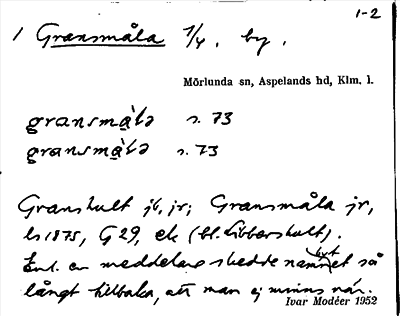 1-2
1 Gransmåla 1/4. by.
Mörlunda sn, Aspelands hd, Klm. l.
gransmå̀lə s. 73
gransmå̀lə s. 73
Granshult jb, jr; Gransmåla jr,
ls 1875, G 29, ek (bl. Libbershult).
Enl. en meddelare skedde namnbytet så
långt tillbaka, att man ej minns när.
Ivar Modéer 1952